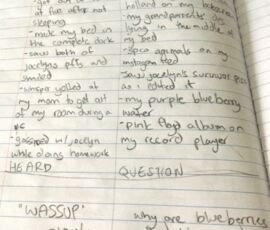 at five after not
sleeping
- made my bed in
the complete dark
- saw both of
jocelyns pfps and
smiled
- whisper yelled at
my mom to get out
of my room during a
- gossiped w/ jocelyn
while doing homework
HEARD
"WASSUP"
holland on my
- my grandparents dog
lying in the middle of
my bed
animals on my
instagram feed
- saw jocelyn's survivor pics
as i edited it
- my purple blueberry
water
- pink floyd album on
my record player
QUESTION
why are blueberries